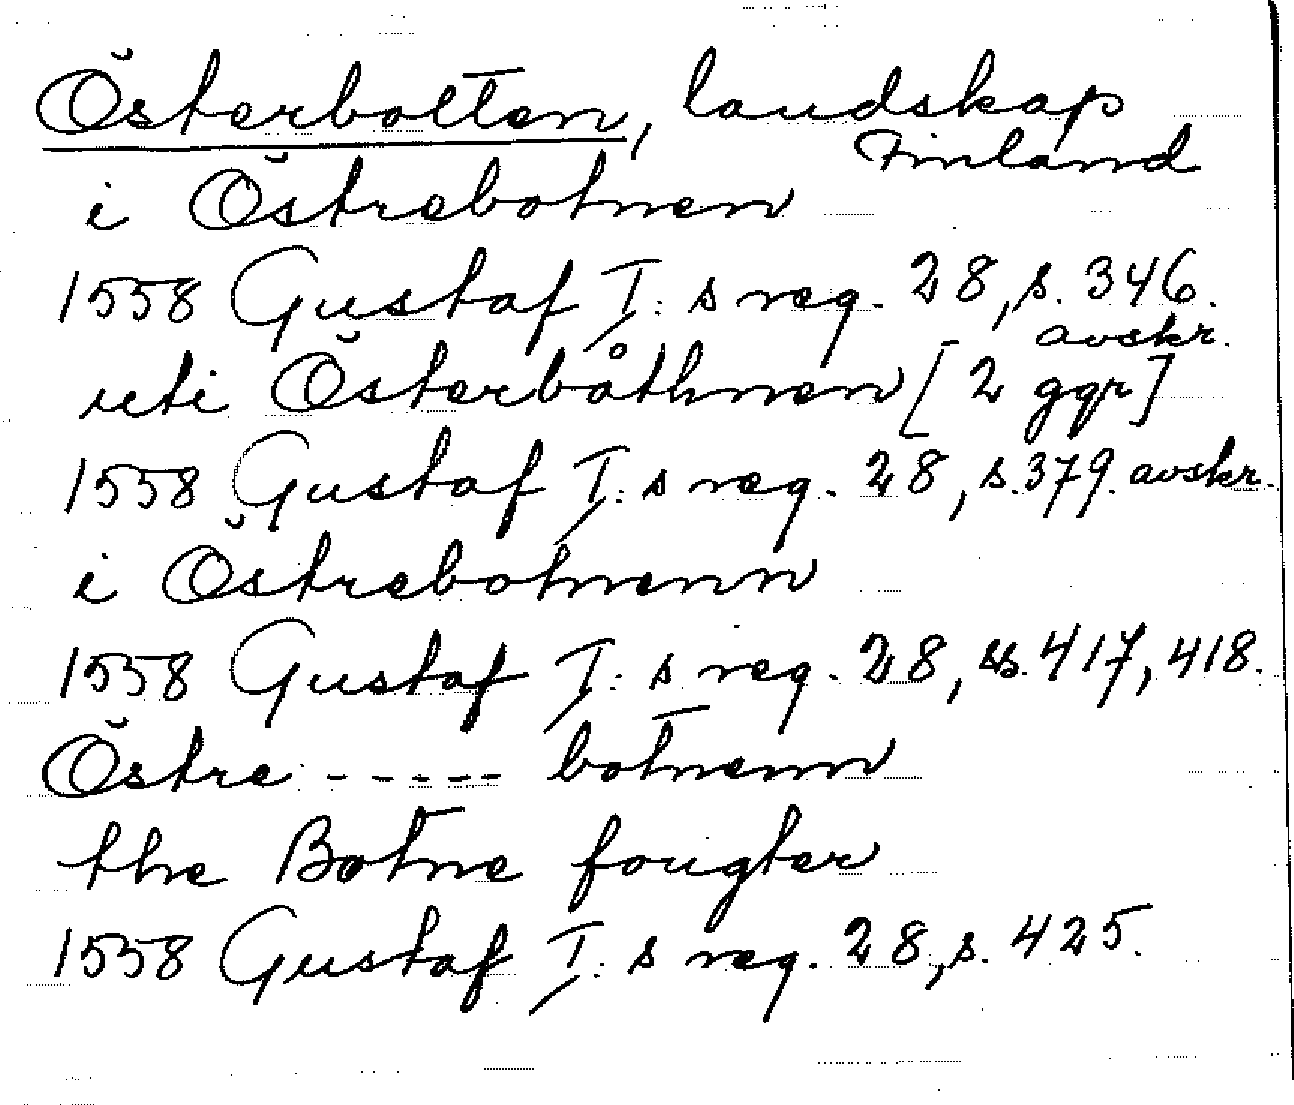 Österbotten, landskap
Finland
i Östrebotnen
1558 Gustaf I:s reg. 28, s. 346.
avskr.
uti Österbåthnen [2 ggr]
1558 Gustaf I:s reg. 28, s. 379. avskr.
i Östrebotnenn
1558 Gustaf I:s reg. 28, ss. 417, 418.
Östre ----- botnenn
the Botne fougter
1558 Gustaf I:s reg. 28, s. 425.